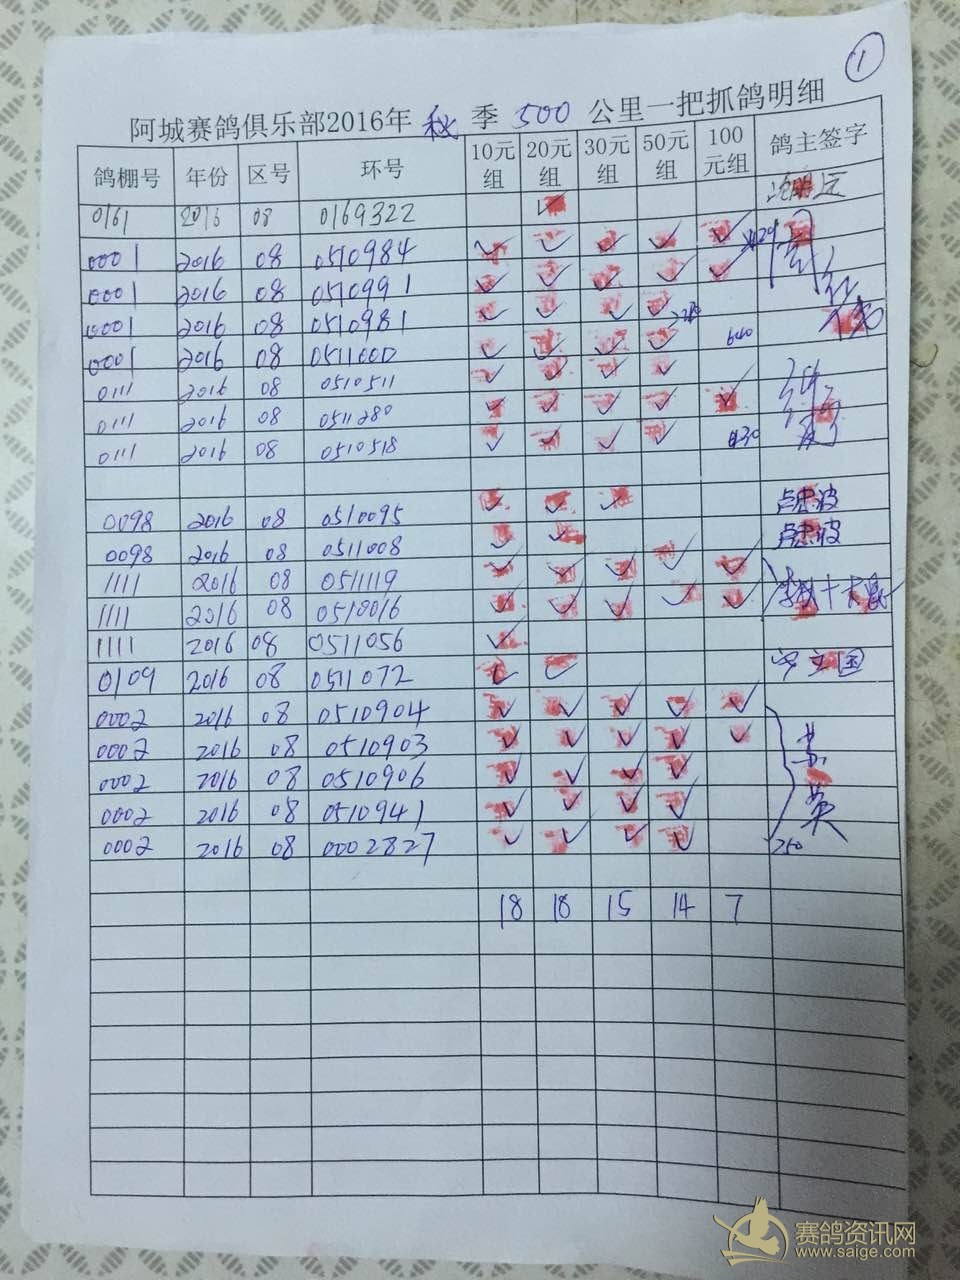 1
阿城赛鸽俱乐部2016年 秋 季 500 公里一把抓鸽明细
鸽棚号 年份 区号 环号 10元组 20元组 30元组 50元组 100元组 鸽主签字
0161 2016 08 0169322 ✓
0001 2016 08 0510984 ✓ ✓ ✓ ✓ ✓
0001 2016 08 0510991 ✓ ✓ ✓ ✓ ✓
0001 2016 08 0510981 ✓ ✓ ✓ ✓
0001 2016 08 0511000 ✓ ✓ ✓ ✓ 640
0111 2016 08 0510511 ✓ ✓ ✓ ✓
0111 2016 08 0511280 ✓ ✓ ✓ ✓ ✓
0111 2016 08 0510518 ✓ ✓ ✓ ✓ 430
0098 2016 08 0510095 ✓ ✓ ✓ 卢忠波
0098 2016 08 0511008 ✓ ✓ 卢忠波
1111 2016 08 0511119 ✓ ✓ ✓ ✓ ✓
1111 2016 08 0510016 ✓ ✓ ✓ ✓ ✓
1111 2016 08 0511056 ✓
0109 2016 08 0511072 ✓ ✓ 国
0002 2016 08 0510904 ✓ ✓ ✓ ✓ ✓
0002 2016 08 0510903 ✓ ✓ ✓ ✓ ✓
0002 2016 08 0510906 ✓ ✓ ✓ ✓
0002 2016 08 0510941 ✓ ✓ ✓ ✓ 英
0002 2016 08 0002827 ✓ ✓ ✓ ✓ 250
18 18 15 14 7
赛鸽资讯网
www.saige.com